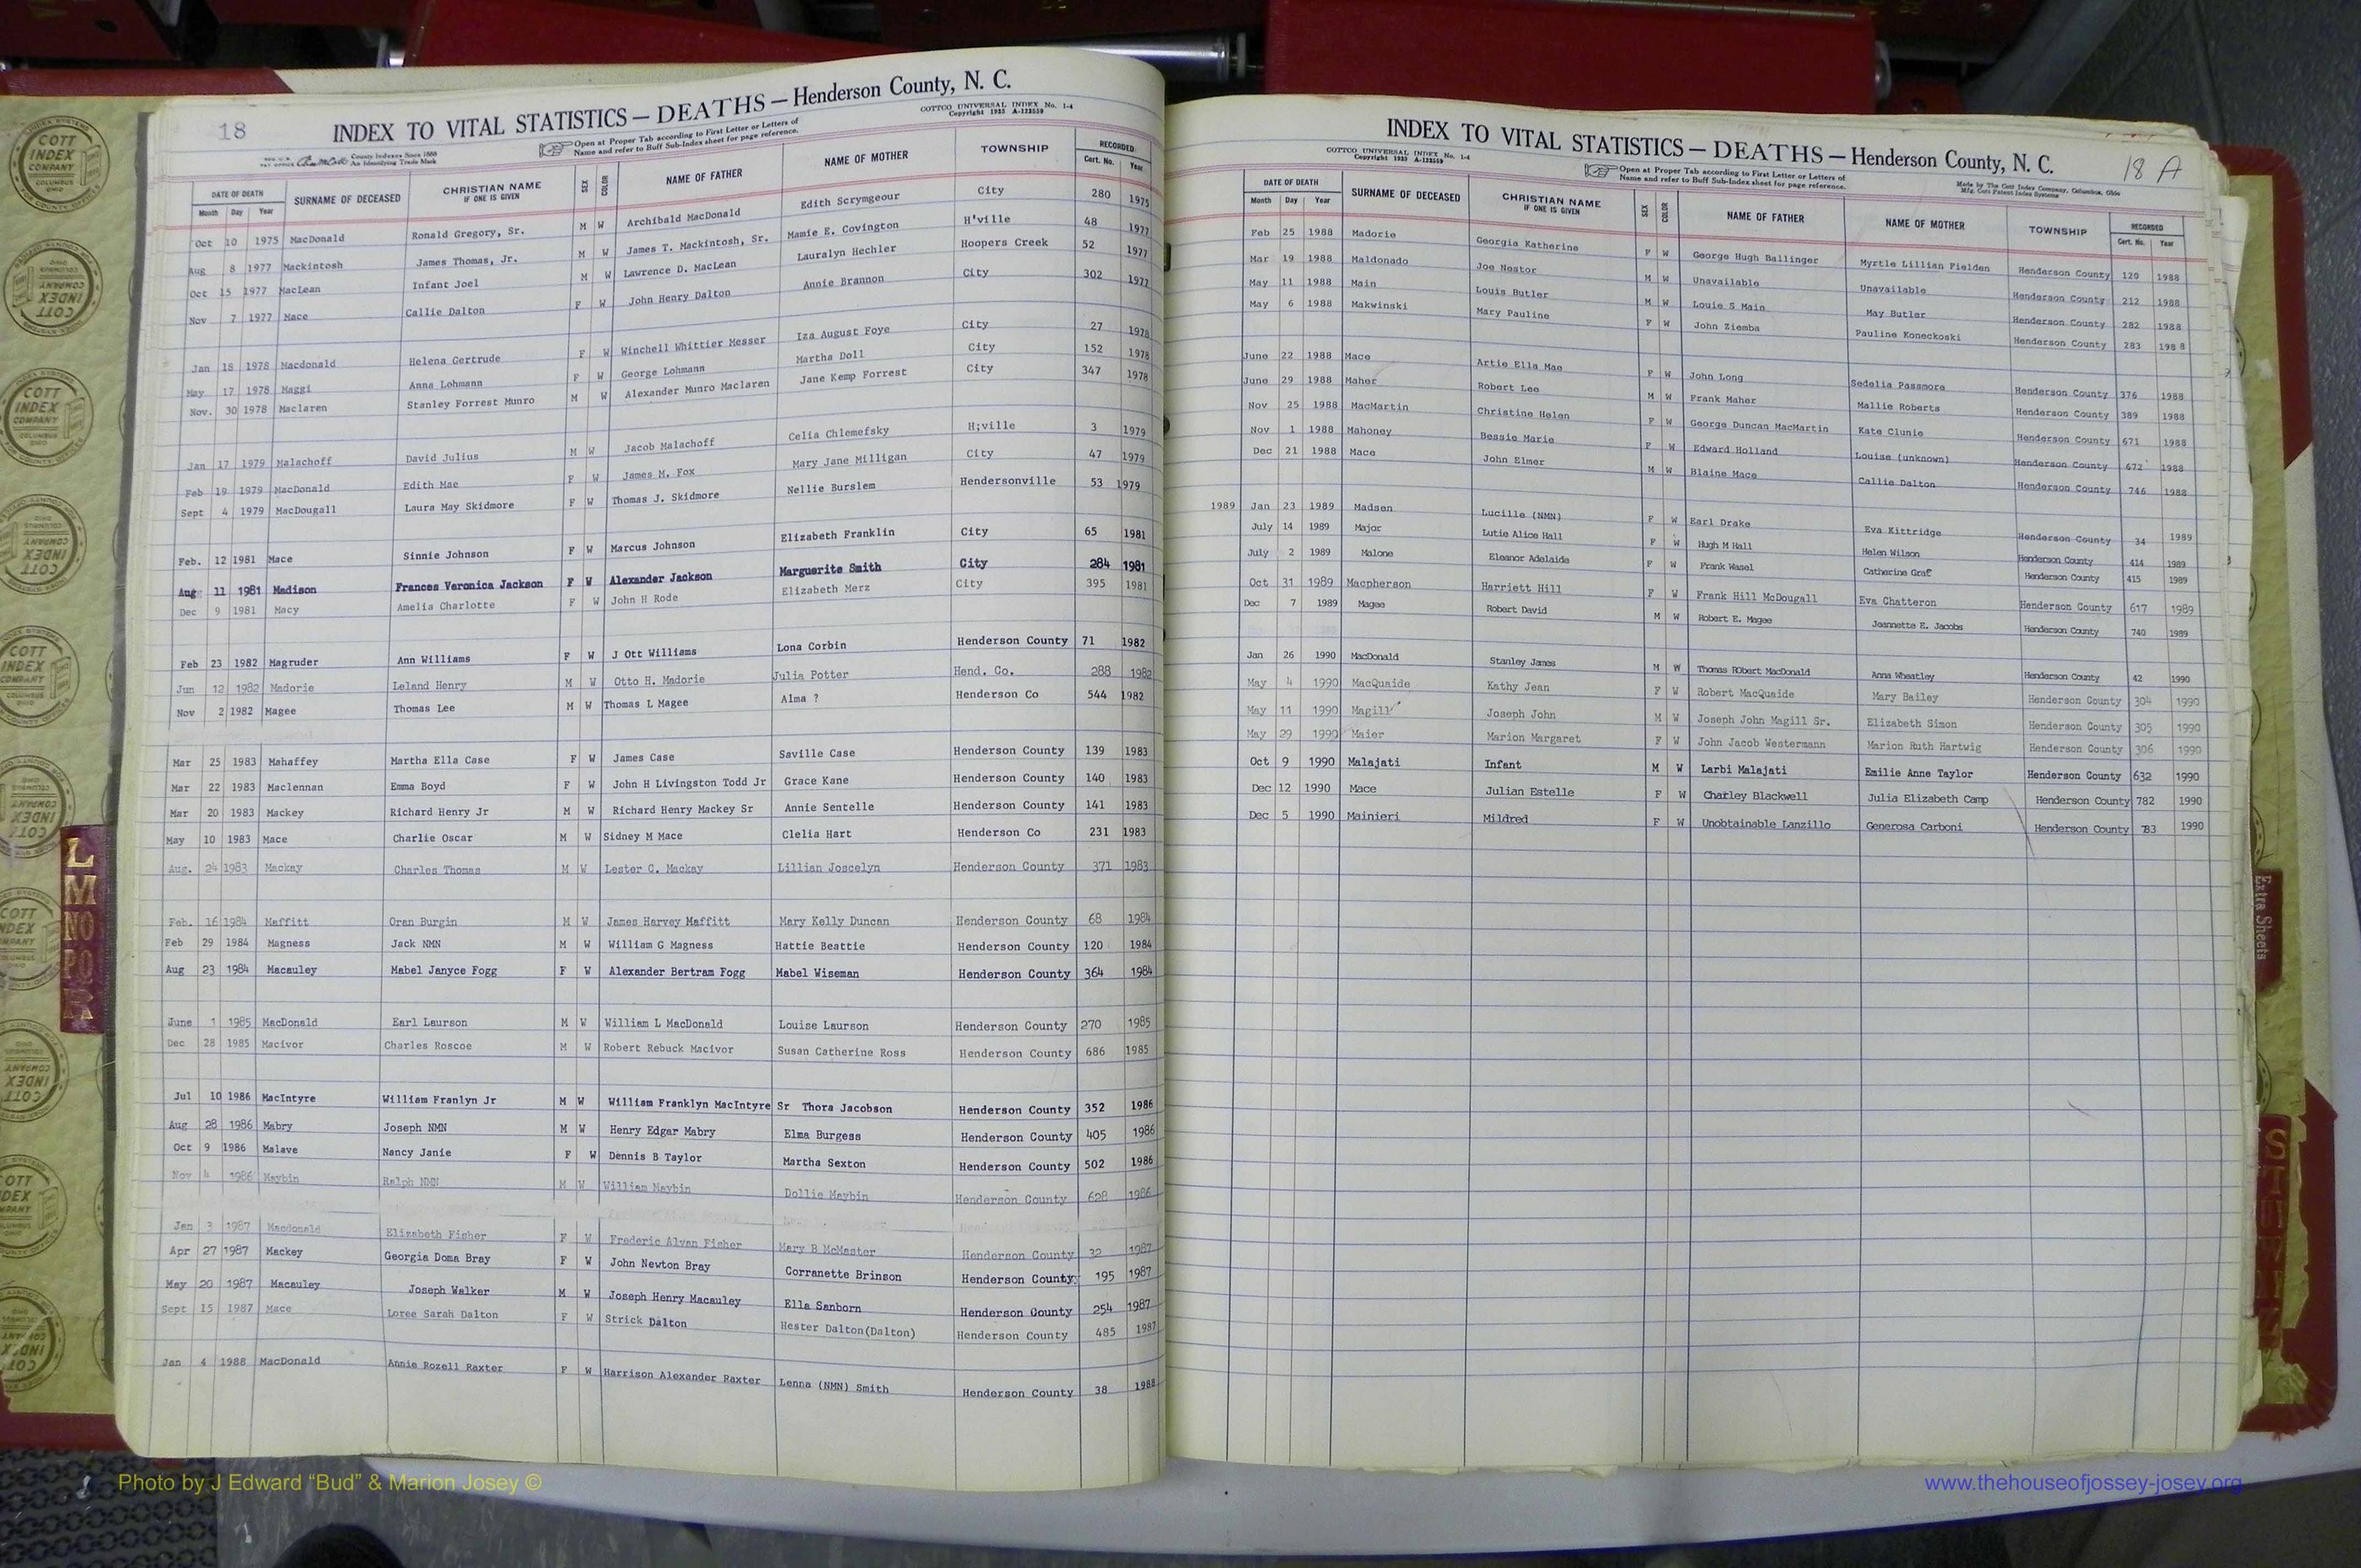 18
INDEX TO VITAL STATISTICS — DEATHS — Henderson County, N. C.
COTTCO UNIVERSAL INDEX No. 1-4
Copyright 1933 A-123559
County Indexes Since 1888
An Identifying Trade Mark
Open at Proper Tab according to First Letter or Letters of
Name and refer to Buff Sub-Index sheet for page reference.
DATE OF DEATH SURNAME OF DECEASED CHRISTIAN NAME IF ONE IS GIVEN SEX COLOR NAME OF FATHER NAME OF MOTHER TOWNSHIP RECORDED
Month Day Year Cert. No. Year
Oct 10 1975 MacDonald Ronald Gregory, Sr. M W Archibald MacDonald Edith Scrymgeour City 280 1975
Aug 8 1977 Mackintosh James Thomas, Jr. M W James T. Mackintosh, Sr. Mamie E. Covington H'ville 48 1977
Oct 15 1977 MacLean Infant Joel M W Lawrence D. MacLean Lauralyn Hechler Hoopers Creek 52 1977
Nov 7 1977 Mace Callie Dalton F W John Henry Dalton Annie Brannon City 302 1977
Jan 18 1978 Macdonald Helena Gertrude F W Winchell Whittier Messer Iza August Foye City 27 1978
May 17 1978 Maggi Anna Lohmann F W George Lohmann Martha Doll City 152 1978
Nov. 30 1978 Maclaren Stanley Forrest Munro M W Alexander Munro Maclaren Jane Kemp Forrest City 347 1978
Jan 17 1979 Malachoff David Julius M W Jacob Malachoff Celia Chlemefsky H;ville 3 1979
Feb 19 1979 MacDonald Edith Mae F W James M. Fox Mary Jane Milligan City 47 1979
Sept 4 1979 MacDougall Laura May Skidmore F W Thomas J. Skidmore Nellie Burslem Hendersonville 53 1979
Feb. 12 1981 Mace Sinnie Johnson F W Marcus Johnson Elizabeth Franklin City 65 1981
Aug 11 1981 Madison Frances Veronica Jackson F W Alexander Jackson Marguerite Smith City 284 1981
Dec 9 1981 Macy Amelia Charlotte F W John H Rode Elizabeth Merz City 395 1981
Feb 23 1982 Magruder Ann Williams F W J Ott Williams Lona Corbin Henderson County 71 1982
Jun 12 1982 Madorie Leland Henry M W Otto H. Madorie Julia Potter Hend. Co. 288 1982
Nov 2 1982 Magee Thomas Lee M W Thomas L Magee Alma ? Henderson Co 544 1982
Mar 25 1983 Mahaffey Martha Ella Case F W James Case Saville Case Henderson County 139 1983
Mar 22 1983 Maclennan Emma Boyd F W John H Livingston Todd Jr Grace Kane Henderson County 140 1983
Mar 20 1983 Mackey Richard Henry Jr M W Richard Henry Mackey Sr Annie Sentelle Henderson County 141 1983
May 10 1983 Mace Charlie Oscar M W Sidney M Mace Clelia Hart Henderson Co 231 1983
Aug. 24 1983 Mackay Charles Thomas M W Lester C. Mackay Lillian Joscelyn Henderson County 371 1983
Feb. 16 1984 Maffitt Oran Burgin M W James Harvey Maffitt Mary Kelly Duncan Henderson County 68 1984
Feb 29 1984 Magness Jack NMN M W William G Magness Hattie Beattie Henderson County 120 1984
Aug 23 1984 Macauley Mabel Janyce Fogg F W Alexander Bertram Fogg Mabel Wiseman Henderson County 364 1984
June 1 1985 MacDonald Earl Laurson M W William L MacDonald Louise Laurson Henderson County 270 1985
Dec 28 1985 Macivor Charles Roscoe M W Robert Rebuck Macivor Susan Catherine Ross Henderson County 686 1985
Jul 10 1986 MacIntyre William Franlyn Jr M W William Franklyn MacIntyre Sr Thora Jacobson Henderson County 352 1986
Aug 28 1986 Mabry Joseph NMN M W Henry Edgar Mabry Elma Burgess Henderson County 405 1986
Oct 9 1986 Malave Nancy Janie F W Dennis B Taylor Martha Sexton Henderson County 502 1986
Nov 4 1986 Maybin Ralph NMN M W William Maybin Dollie Maybin Henderson County 628 1986
Jan 3 1987 Macdonald Elizabeth Fisher F W Frederic Alvan Fisher Mary B McMaster Henderson County 32 1987
Apr 27 1987 Mackey Georgia Doma Bray F W John Newton Bray Corranette Brinson Henderson County 195 1987
May 20 1987 Macauley Joseph Walker M W Joseph Henry Macauley Ella Sanborn Henderson County 254 1987
Sept 15 1987 Mace Loree Sarah Dalton F W Strick Dalton Hester Dalton(Dalton) Henderson County 485 1987
Jan 4 1988 MacDonald Annie Rozell Raxter F W Harrison Alexander Raxter Lenna (NMN) Smith Henderson County 38 1988
INDEX TO VITAL STATISTICS — DEATHS — Henderson County, N. C.
18 A
COTTCO UNIVERSAL INDEX No. 1-4
Copyright 1933 A-123559
Open at Proper Tab according to First Letter or Letters of
Name and refer to Buff Sub-Index sheet for page reference.
Made by The Cott Index Company, Columbus, Ohio
Mfg. Cott Patent Index Systems
DATE OF DEATH SURNAME OF DECEASED CHRISTIAN NAME IF ONE IS GIVEN SEX COLOR NAME OF FATHER NAME OF MOTHER TOWNSHIP RECORDED
Month Day Year Cert. No. Year
Feb 25 1988 Madorie Georgia Katherine F W George Hugh Ballinger Myrtle Lillian Fielden Henderson County 120 1988
Mar 19 1988 Maldonado Joe Nestor M W Unavailable Unavailable Henderson County 212 1988
May 11 1988 Main Louis Butler M W Louie S Main May Butler Henderson County 282 1988
May 6 1988 Makwinski Mary Pauline F W John Ziemba Pauline Koneckoski Henderson County 283 1988
June 22 1988 Mace Artie Ella Mae F W John Long Sedelia Passmore Henderson County 376 1988
June 29 1988 Maher Robert Lee M W Frank Maher Mallie Roberts Henderson County 389 1988
Nov 25 1988 MacMartin Christine Helen F W George Duncan MacMartin Kate Clunie Henderson County 671 1988
Nov 1 1988 Mahoney Bessie Marie F W Edward Holland Louise (unknown) Henderson County 672 1988
Dec 21 1988 Mace John Elmer M W Blaine Mace Callie Dalton Henderson County 746 1988
1989 Jan 23 1989 Madsen Lucille (NMN) F W Earl Drake Eva Kittridge Henderson County 34 1989
July 14 1989 Major Lutie Alice Hall F W Hugh M Hall Helen Wilson Henderson County 414 1989
July 2 1989 Malone Eleanor Adelaide F W Frank Wasel Catherine Graf Henderson County 415 1989
Oct 31 1989 Macpherson Harriett Hill F W Frank Hill McDougall Eva Chatteron Henderson County 617 1989
Dec 7 1989 Magee Robert David M W Robert E. Magee Jeannette E. Jacobs Henderson County 740 1989
Jan 26 1990 MacDonald Stanley James M W Thomas RObert MacDonald Anna Wheatley Henderson County 42 1990
May 4 1990 MacQuaide Kathy Jean F W Robert MacQuaide Mary Bailey Henderson County 304 1990
May 11 1990 Magill Joseph John M W Joseph John Magill Sr. Elizabeth Simon Henderson County 305 1990
May 29 1990 Maier Marion Margaret F W John Jacob Westermann Marion Ruth Hartwig Henderson County 306 1990
Oct 9 1990 Malajati Infant M W Larbi Malajati Emilie Anne Taylor Henderson County 632 1990
Dec 12 1990 Mace Julian Estelle F W Charley Blackwell Julia Elizabeth Camp Henderson County 782 1990
Dec 5 1990 Mainieri Mildred F W Unobtainable Lanzillo Generosa Carboni Henderson County 783 1990
L
M
NO
PQ
R
Extra Sheets
COTT
INDEX
COMPANY
COLUMBUS
OHIO
Photo by J Edward “Bud” & Marion Josey ©
www.thehouseofjossey-josey.org